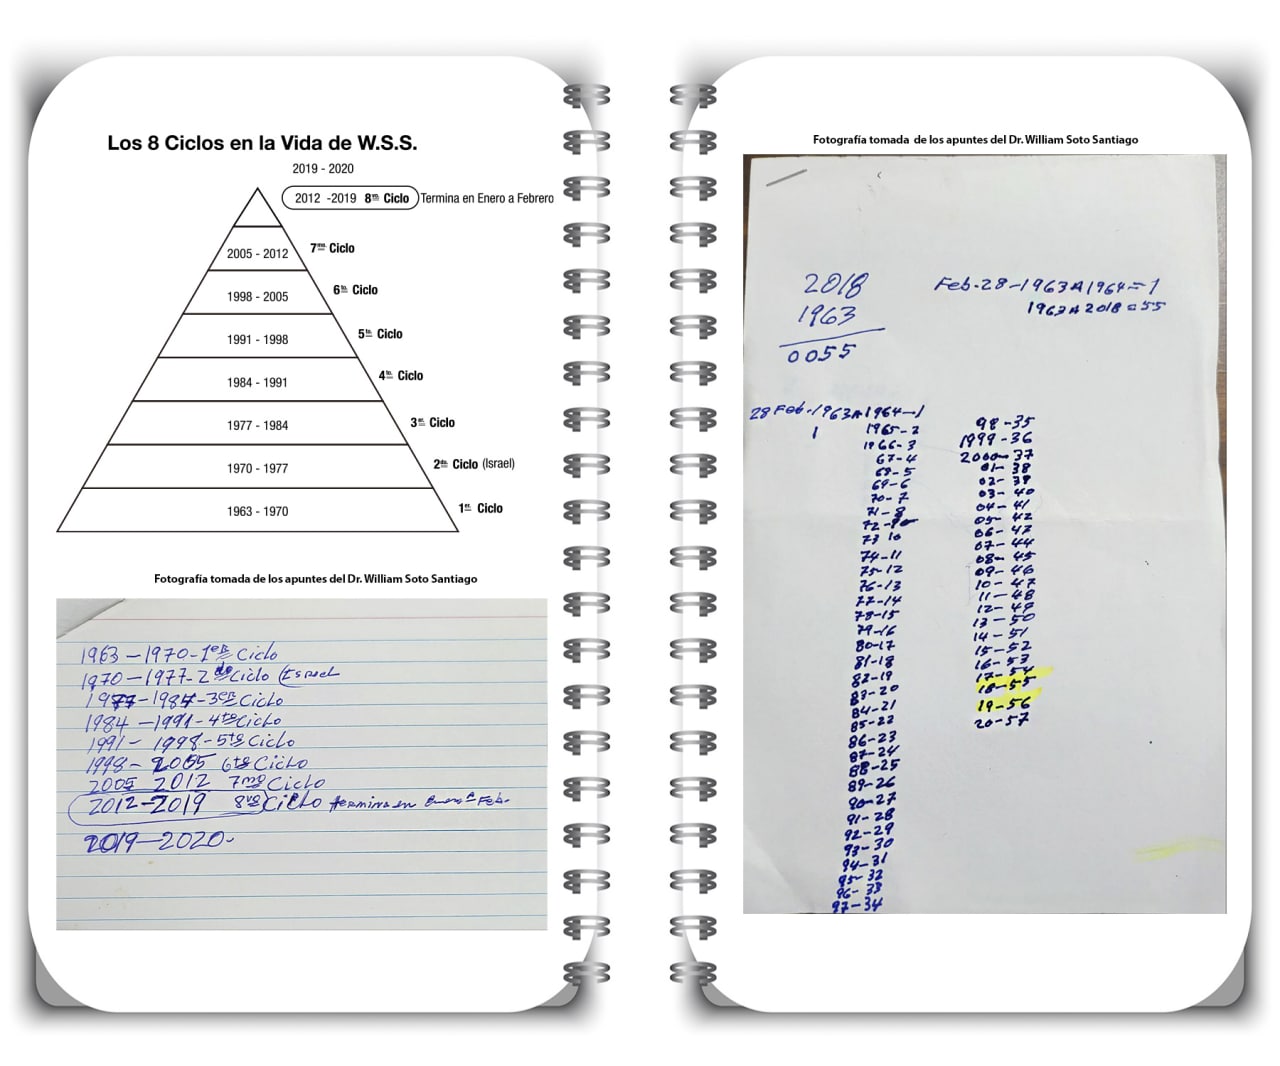 Los 8 Ciclos en la Vida de W.S.S.
2019 - 2020
2012 -2019 8vo. Ciclo Termina en Enero a Febrero
2005 - 2012 7mo. Ciclo
1998 - 2005 6to. Ciclo
1991 - 1998 5to. Ciclo
1984 - 1991 4to. Ciclo
1977 - 1984 3er. Ciclo
1970 - 1977 2do. Ciclo (Israel)
1963 - 1970 1er. Ciclo
Fotografía tomada de los apuntes del Dr. William Soto Santiago
1963 - 1970 - 1er Ciclo
1970 - 1977 - 2do Ciclo (Israel
1977 - 1984 - 3er Ciclo
1984 - 1991 - 4to Ciclo
1991 - 1998 - 5to Ciclo
1998 - 2005 6to Ciclo
2005 2012 7mo Ciclo
2012 - 2019 8vo Ciclo termina en Enero a Feb.
2019 - 2020.
Fotografía tomada de los apuntes del Dr. William Soto Santiago
2018
1963
0055
Feb-28-1963 A 1964 = 1
1963 A 2018 = 55
28 Feb-1963 A 1964-1
1
1965-2
1966-3
67-4
68-5
69-6
70-7
71-8
72-9
73 10
74-11
75-12
76-13
77-14
78-15
79-16
80-17
81-18
82-19
83-20
84-21
85-22
86-23
87-24
88-25
89-26
90-27
91-28
92-29
93-30
94-31
95-32
96-33
97-34
98-35
1999-36
2000-37
01-38
02-39
03-40
04-41
05-42
06-43
07-44
08-45
09-46
10-47
11-48
12-49
13-50
14-51
15-52
16-53
17-54
18-55
19-56
20-57